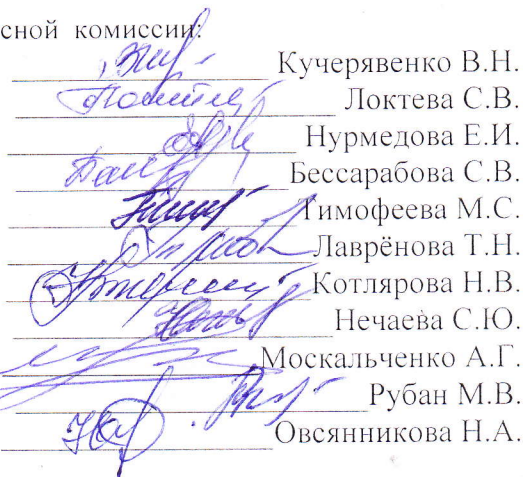 сной комиссии:
Кучерявенко В.Н.
Локтева С.В.
Нурмедова Е.И.
Бессарабова С.В.
Тимофеева М.С.
Лаврёнова Т.Н.
Котлярова Н.В.
Нечаева С.Ю.
Москальченко А.Г.
Рубан М.В.
Овсянникова Н.А.